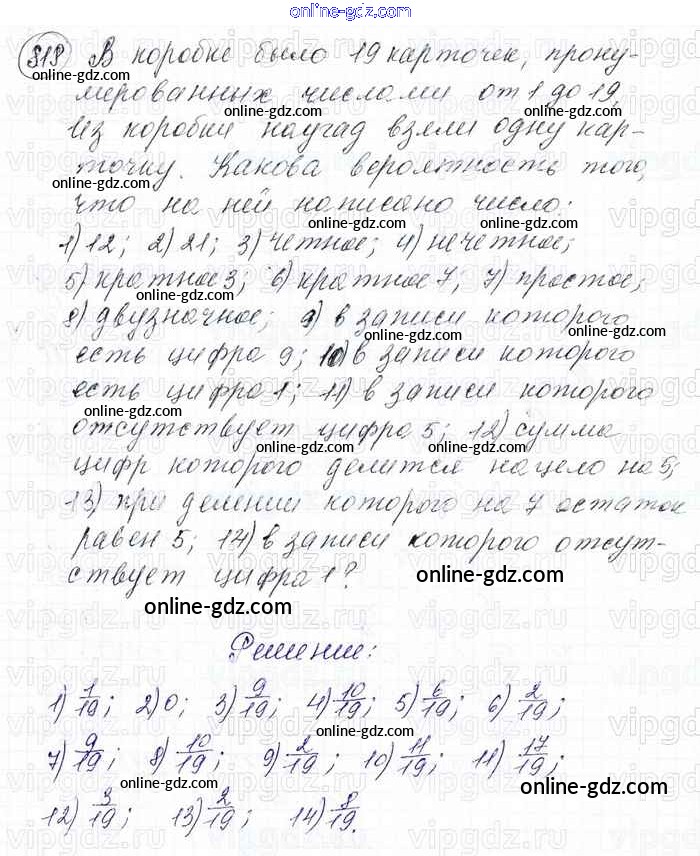 online-gdz.com
818 В коробке было 19 карточек, прону-
online-gdz.com
мерованных числами от 1 до 19,
online-gdz.com
Из коробки наугад взяли одну кар-
online-gdz.com
точку. Какова вероятность того,
online-gdz.com
что на ней написано число:
online-gdz.com
1) 12; 2) 21; 3) четное; 4) нечетное;
online-gdz.com
5) кратное 3; 6) кратное 7; 7) простое;
online-gdz.com
8) двузначное; 9) в записи которого
online-gdz.com
есть цифра 9; 10) в записи которого
online-gdz.com
есть цифра 1; 11) в записи которого
online-gdz.com
отсутствует цифра 5; 12) сумма
online-gdz.com
цифр которого делится нацело на 5;
online-gdz.com
13) при делении которого на 7 остаток
online-gdz.com
равен 5; 14) в записи которого отсут-
online-gdz.com
ствует цифра 1?
online-gdz.com online-gdz.com
Решение:
online-gdz.com
1) 1/19; 2) 0; 3) 9/19; 4) 10/19; 5) 6/19; 6) 2/19;
online-gdz.com
7) 9/19; 8) 10/19; 9) 2/19; 10) 11/19; 11) 17/19;
online-gdz.com
12) 3/19; 13) 2/19; 14) 8/19.
online-gdz.com